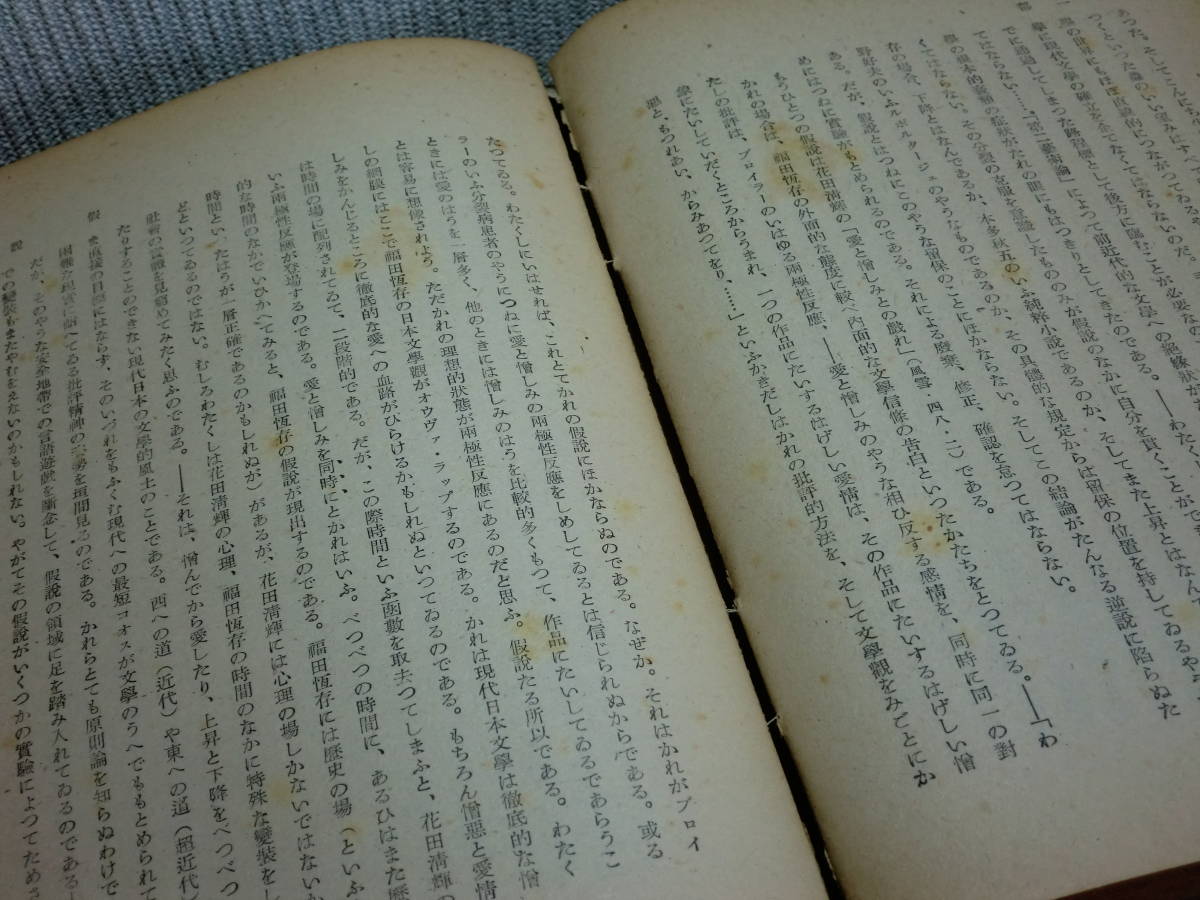 あつた。そしてこんにち
つくといつた
の世界にもほぼ直線的につながつてゐる。――わたく
學に現代文學の確立を企てなくてはならないのだ。
でに通過してしまつた路程標として後方に臨むことが必要な
てはならない……「第二藝術論」によつて前近代的な文學への絶縁状が
學の根本的
くてはならない。その分裂の克服を意識したもののみが假說のなかに自分を貫くことが
存の場合、下降とはなんであるか、本多秋五のいふ純粹小說であるのか、そしてまた上昇とはなん
野好夫のいふルポルタージュのやうなものであるのか、その具體的な規定からは留保の位置を持してゐるやう
ある。だが、假說とはつねにこのやうな留保のことにほかならない。そしてこの結論がたんなる逆說に陷らぬた
めにはつねに實驗がもとめられるのである。それによる廢棄、修正、確認を怠つてはならない。
もうひとつの假說は花田淸輝の「愛と憎しみとの戲れ」(風雪・四八・二)である。
かれの場合は、福田恆存の外面的な態度に較べ內面的な文學信條の告白といつたかたちをとつてゐる。――「わ
たしの批評は、ブロイラーのいはゆる兩極性反應、――愛と憎しみのやうな相ひ反する感情を、同時に同一の對
象にたいしていだくところからうまれ、一つの作品にたいするはげしい愛情は、その作品にたいするはげしい憎
惡と、もつれあい、からみあつてをり、……」といふかきだしはかれの批評的方法を、そして文學觀をみごとにか
たつてゐる。わたくしにいはせれば、これとてかれの假說にほかならぬのである。なぜか。それはかれがブロイ
ラーのいふ分裂病患者のやうにつねに愛と憎しみの兩極性反應をしめしてゐるとは信じられぬからである。或る
ときには愛のはうを一層多く、他のときには憎しみのはうを比較的多くもつて、作品にたいしてゐるであらうこ
とは容易に想像されよう。ただかれの理想的狀態が兩極性反應にあるのだと思ふ。假說たる所以である。わたく
しの網膜にはここで福田恆存の日本文學觀がオウヴァ・ラップするのである。かれは現代日本文學は徹底的な憎
しみをかんじるところに徹底的な愛への血路がひらけるかもしれぬといつてゐるのである。もちろん憎惡と愛情
は時間の場に配列されてゐて、二段階的である。だが、この際時間といふ函數を取去つてしまふと、花田淸輝の
いふ兩極性反應が登場するのである。愛と憎しみを同時にとかれはいふ。べつべつの時間に、あるひはまた歷
的な時間のなかでいひかへてみると、福田恆存の假說が現出するのである。福田恆存には歷史の場(といふ
時間といつたはうが一層正確であるのかもしれぬが)があるが、花田淸輝には心理の場しかないではないか
どといつてゐるのではない。むしろわたくしは花田淸輝の心理、福田恆存の時間のなかに特殊な變裝をし
社會の位置を見窮めてみたく思ふのである。――それは、憎んでから愛したり、上昇と下降をべつべつ
たりすることのできない現代日本の文學的風土のことである。西への道(近代)や東への道(超近代)
ま直接の目標にはならず、そのいづれをもふくむ現代への最短コオスが文學のうへでももとめられて
困難な現實に面してゐる批評精神の一勢を垣間見るのである。かれらとても原則論を知らぬわけで
だが、そのやうな安全地帶での言語遊戲を斷念して、假說の領域に足を踏み入れてゐるのである
での變裝もまたやむをえないのかもしれない。やがてその假說がいくつかの實驗によつてためさ
假
說